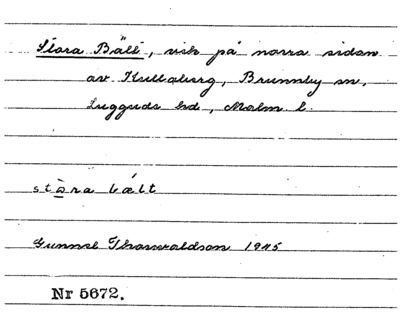 Stora Bält, vik på norra sidan
av Kullaberg, Brunnby sn,
Luggude hd, Malm l.
stò̱ra bælt
Gunnel Thorvaldson 1945
Nr 5672.